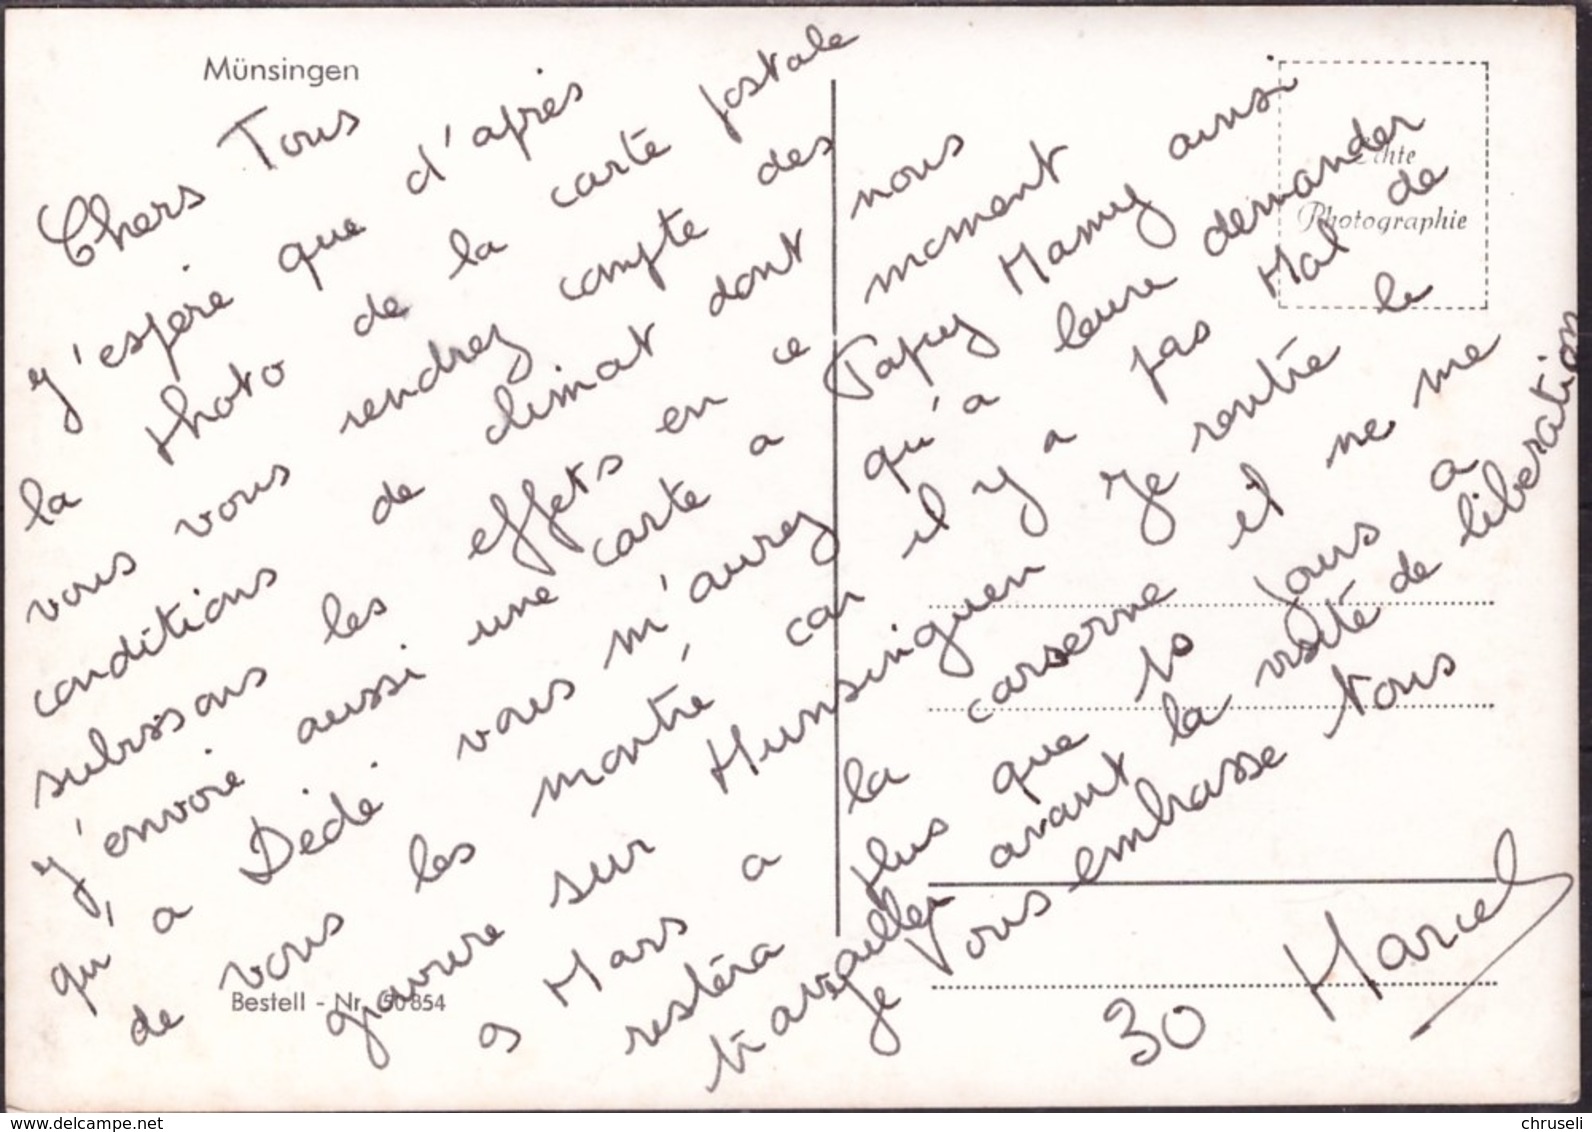 Münsingen
Chers Tous
y'espère que d'après
la photo de la carte postale
vous vous rendrez compte des
conditions de climat dont nous
subissons les effets en ce moment
y'envoie aussi une carte a Papuy Mamy ainsi
qu'a Dédé vous m'aurez qu'a leure demander
de vous les montré car il y a pas Mal de
gravure sur Munsinguen Je rentre le
9 Mars a la caserne et il ne me
restéra plus que 10 jours a
travailler avant la visite de libération
Je vous embrasse tous
30 Marcel
Echte
Photographie
Bestell - Nr. 50 854
delcampe.net
chruseli